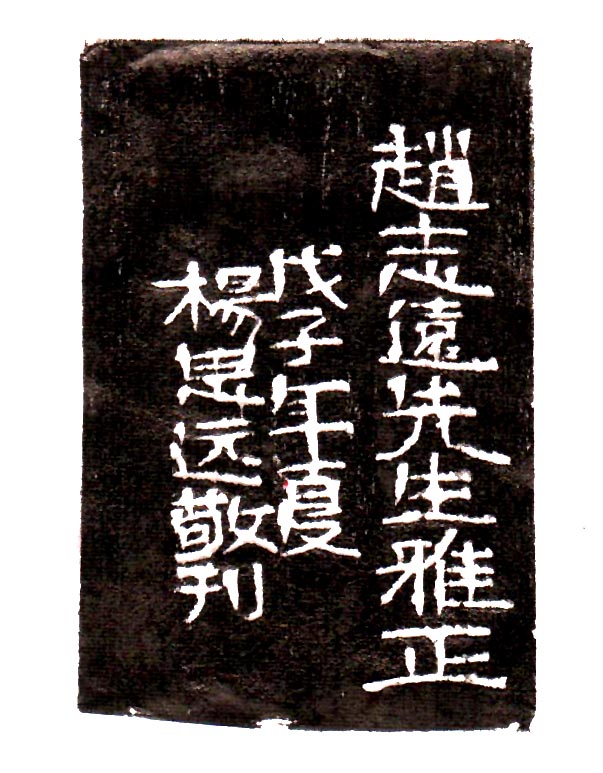 趙志遠先生雅正
戊子年夏
楊思远敬刊